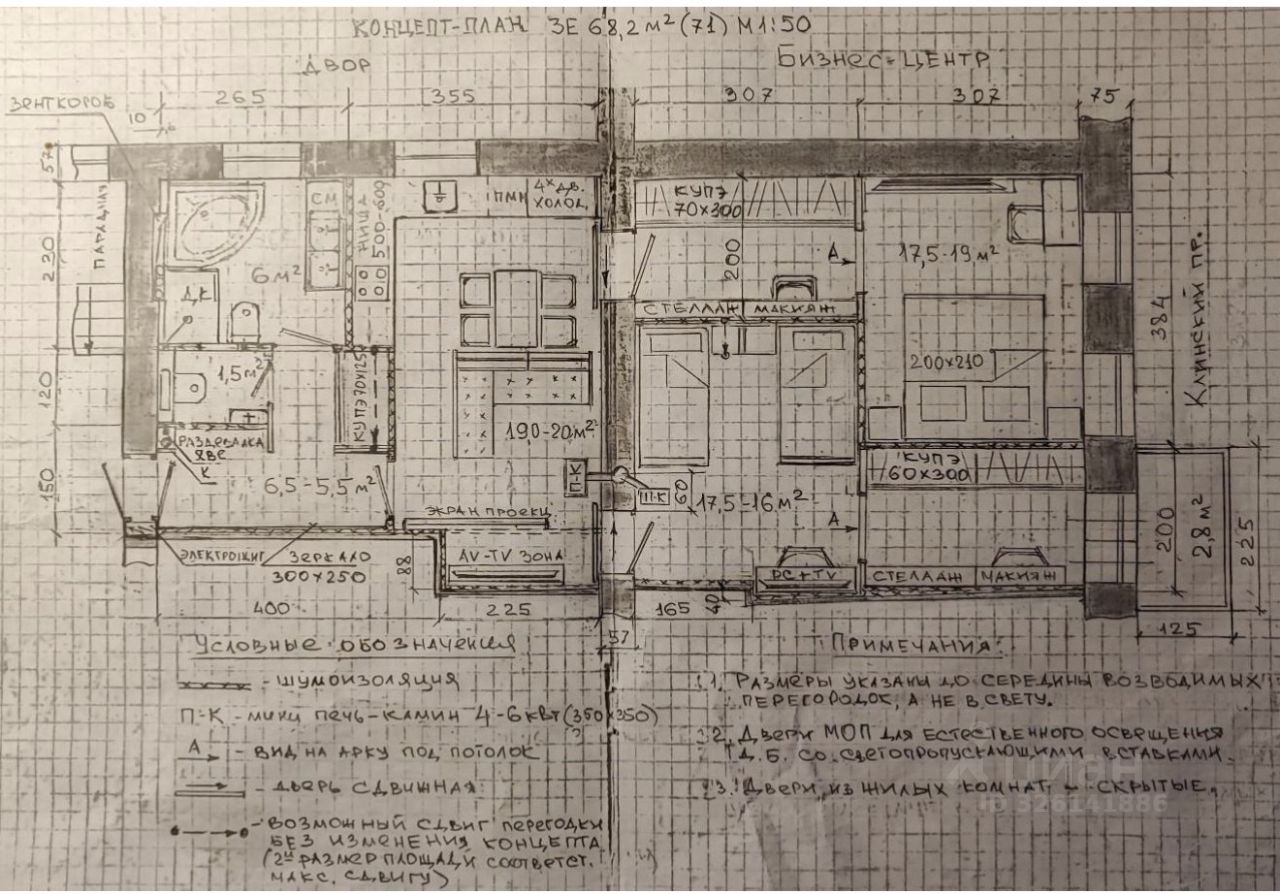 КОНЦЕПТ-ПЛАН 3Е 68,2 м² (71) М 1:50
ДВОР
БИЗНЕС-ЦЕНТР
ВЕНТКОРОБ
265
355
307
307
75
10
57
ПАРАДНАЯ
230
120
150
СМ
НИША
500-600
ПММ
4х дв.
ХОЛОД.
КУПЭ
70х300
200
А
17,5-19 м²
6 м²
Д.К
СТЕЛЛАЖ
МАКИЯЖ
384
КЛИНСКИЙ ПР.
200х210
1,5 м²
КУПЭ 70х125
190-20 м²
РАЗДЕВАЛКА
К
6,5-5,5 м²
П-К
П-К
60
17,5-16 м²
КУПЭ
60х300
А
200
2,8 м²
225
ЭКРАН ПРОЕКЦ
ЭЛЕКТРОЩИТ
ЗЕРКАЛО
300х250
88
AV-TV ЗОНА
PC+TV
СТЕЛЛАЖ
МАКИЯЖ
400
225
165
40
57
125
УСЛОВНЫЕ ОБОЗНАЧЕНИЯ
- ШУМОИЗОЛЯЦИЯ
П-К - МИНИ ПЕЧЬ-КАМИН 4-6 кВт (350х350)
А - ВИД НА АРКУ ПОД ПОТОЛОК
- ДВЕРЬ СДВИЖНАЯ
- ВОЗМОЖНЫЙ СДВИГ ПЕРЕГОДКИ
БЕЗ ИЗМЕНЕНИЯ КОНЦЕПТА
(2й РАЗМЕР ПЛОЩАДИ СООТВЕТСТ.
МАКС. СДВИГУ)
ПРИМЕЧАНИЯ:
1. РАЗМЕРЫ УКАЗАНЫ ДО СЕРЕДИНЫ ВОЗВОДИМЫХ
ПЕРЕГОРОДОК, А НЕ В СВЕТУ.
2. ДВЕРИ МОП ДЛЯ ЕСТЕСТВЕННОГО ОСВЕЩЕНИЯ
Д.Б. СО СВЕТОПРОПУСКАЮЩИМИ ВСТАВКАМИ.
3. ДВЕРИ ИЗ ЖИЛЫХ КОМНАТ - СКРЫТЫЕ.
Циан
ID 326141886